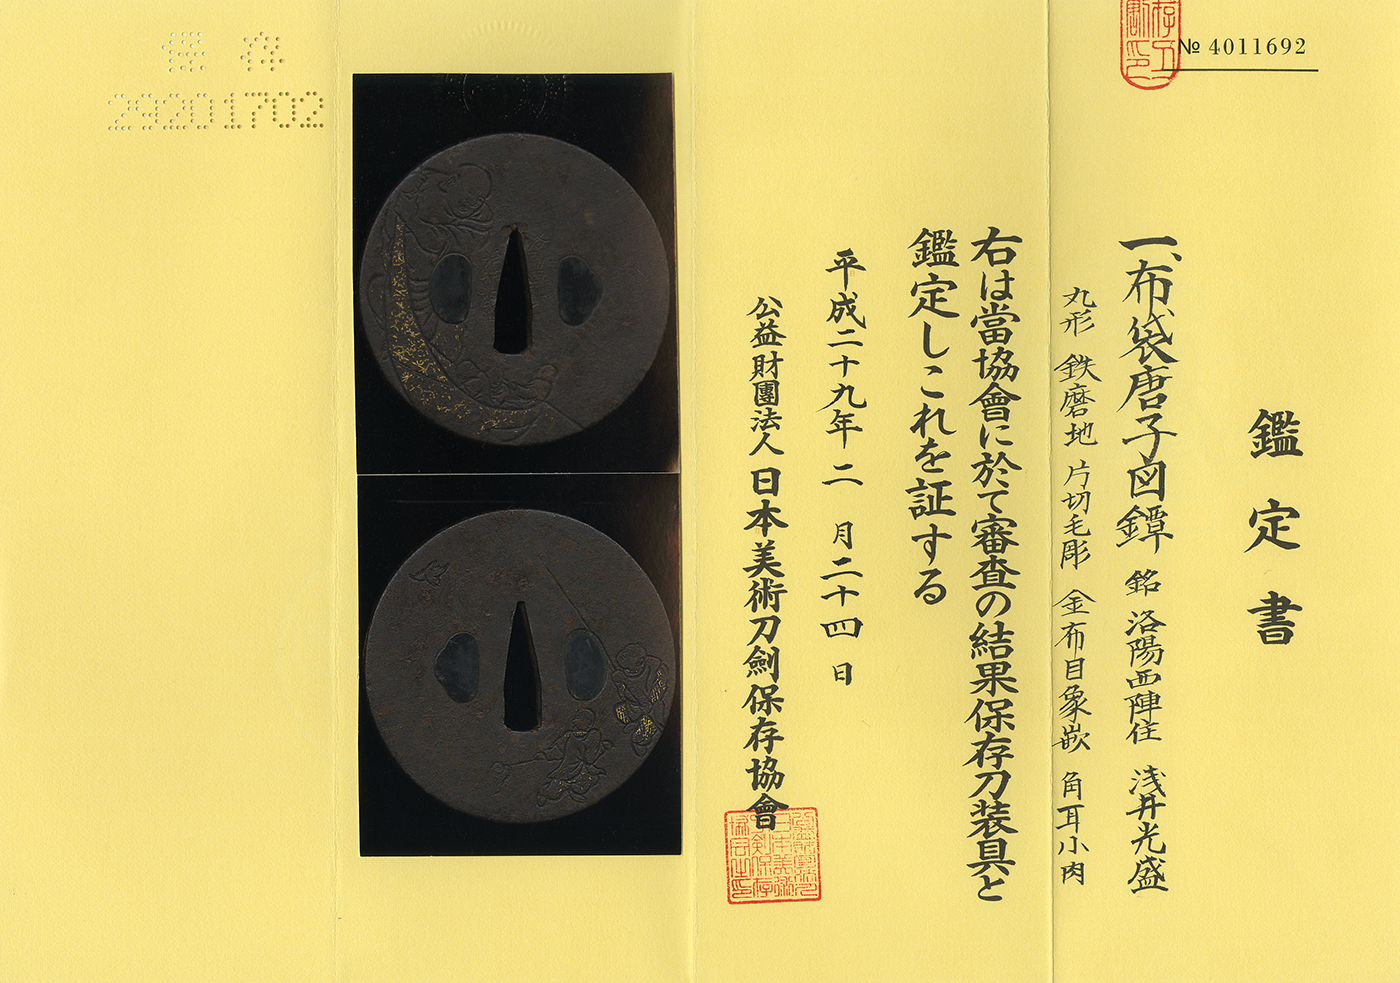 № 4011692
鑑定書
一、布袋唐子図鐔 銘 洛陽西陣住 浅井光盛
丸形 鉄磨地 片切毛彫 金布目象嵌 角耳小肉
右は當協會に於て審査の結果保存刀装具と
鑑定しこれを証する
平成二十九年二月二十四日
公益財團法人 日本美術刀劍保存協會
保存
29201702